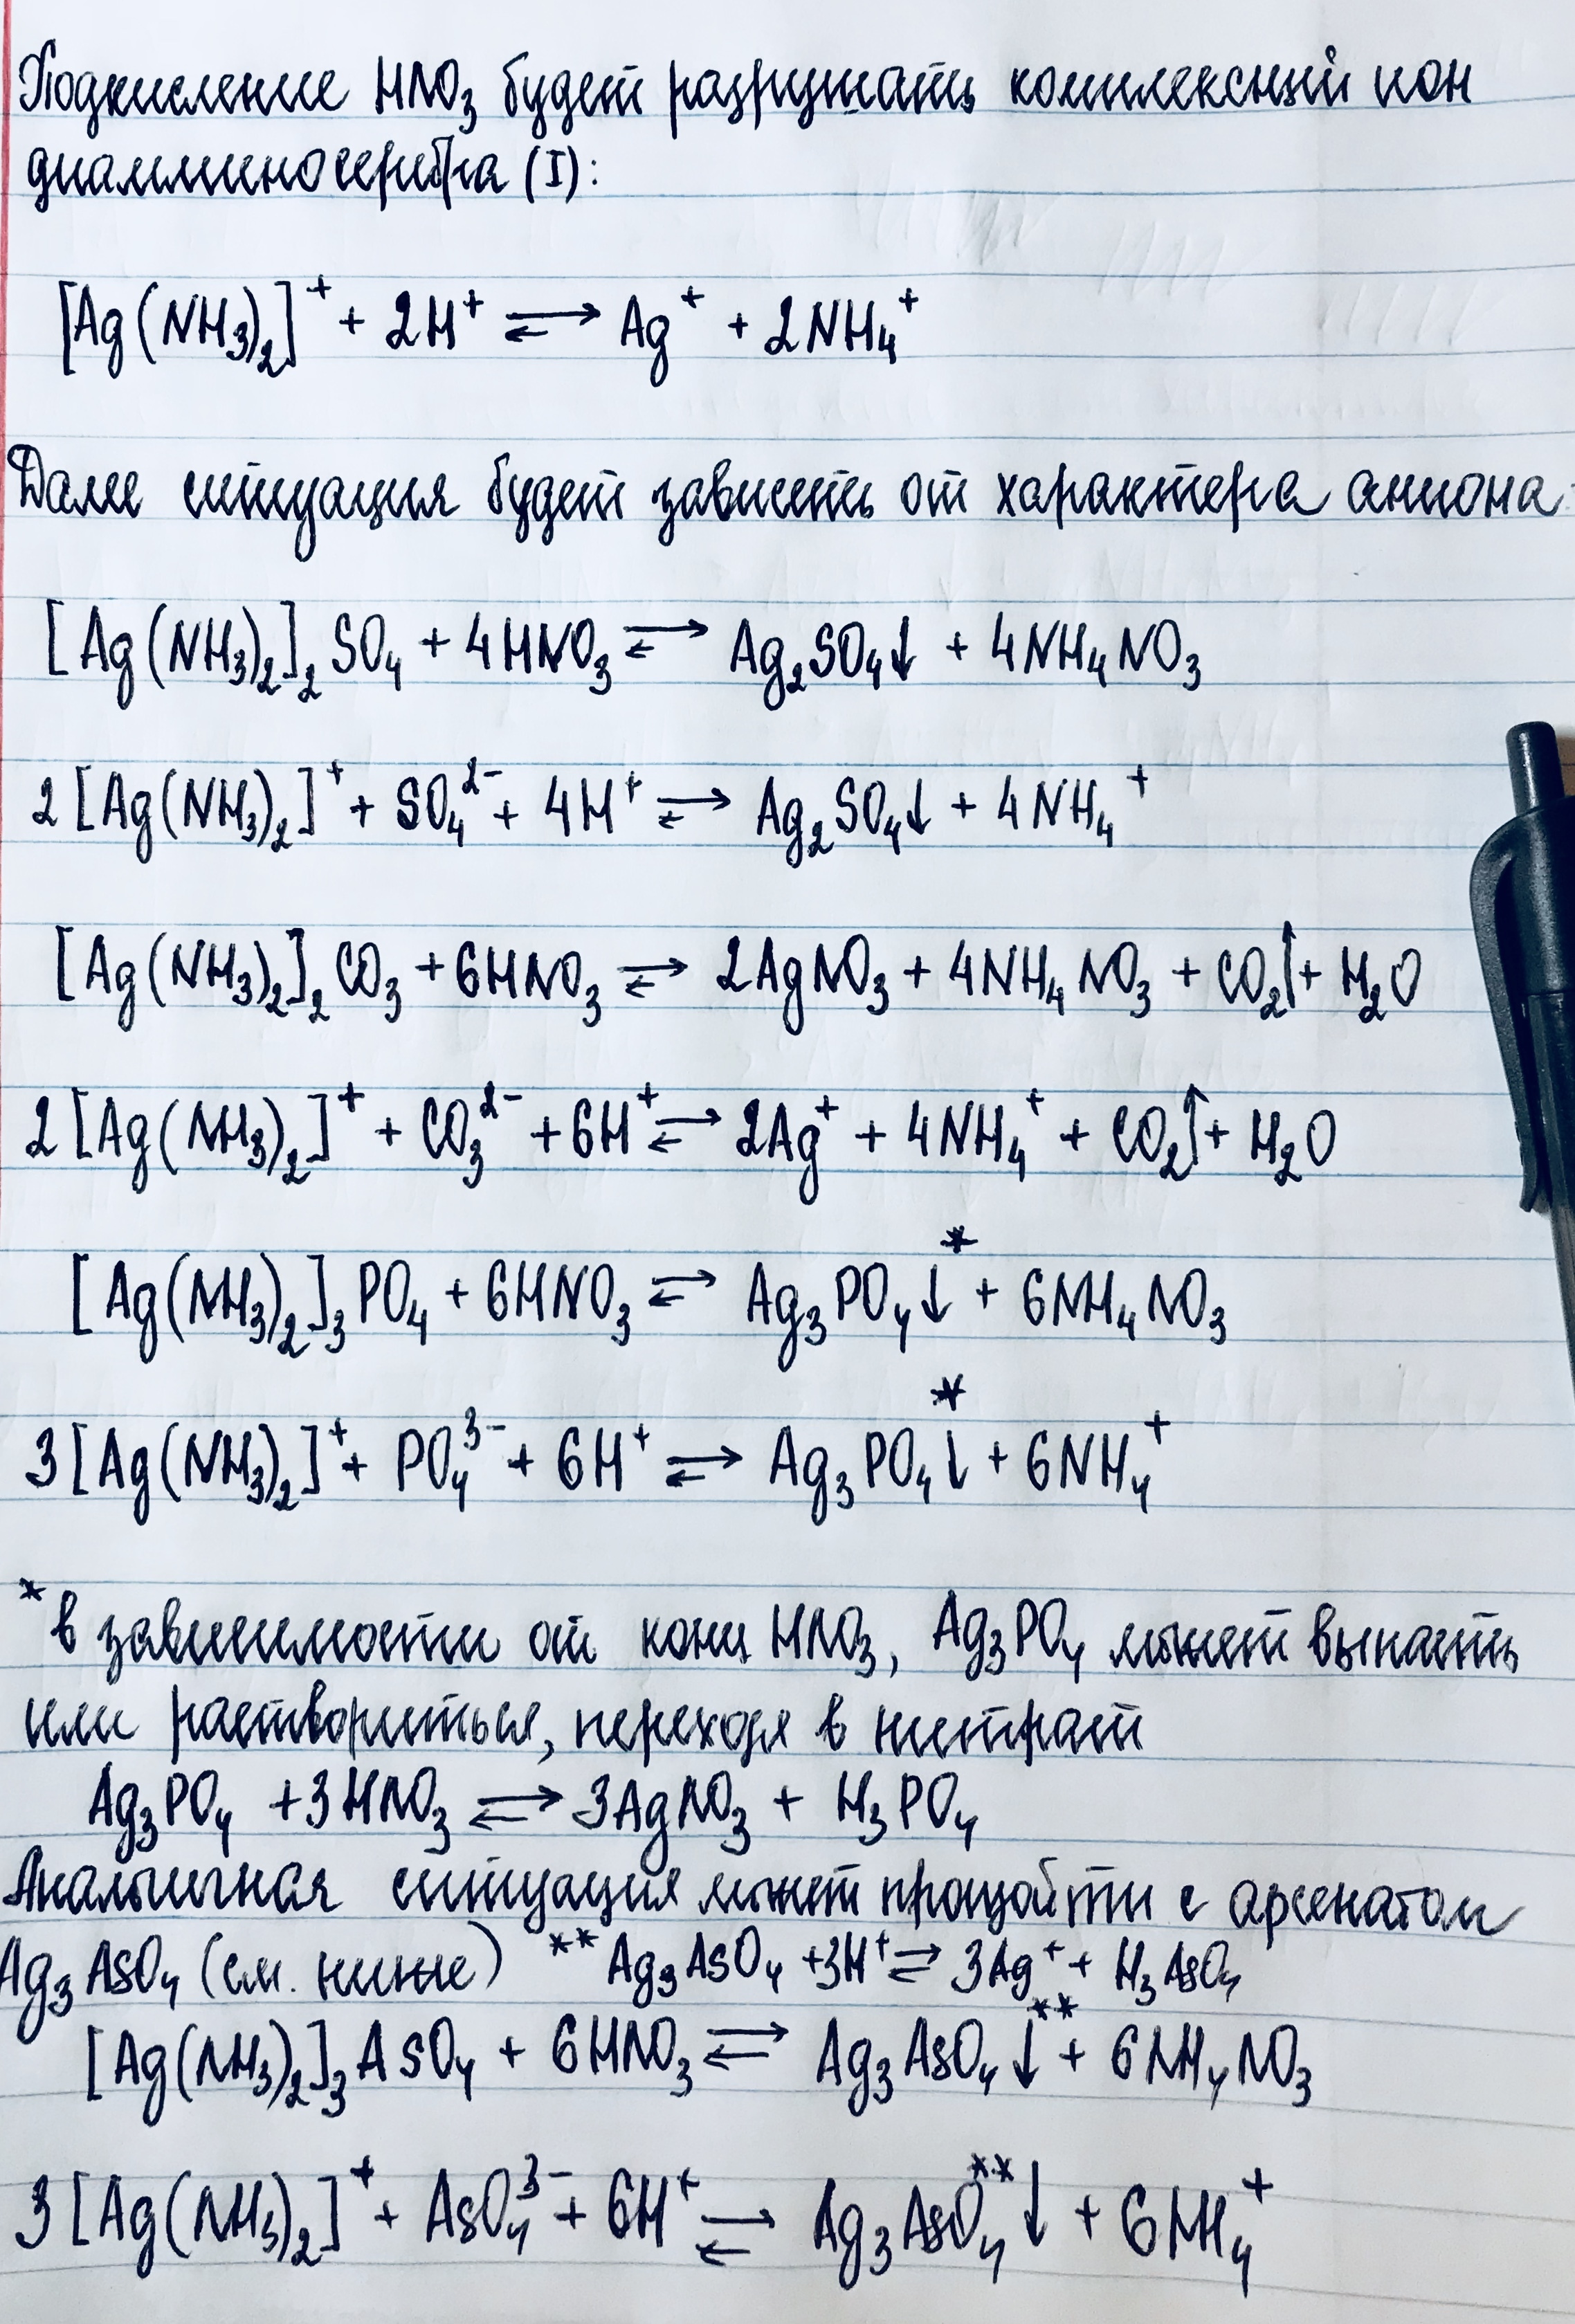 Подкисление HNO₃ будет разрушать комплексный ион
диамминосеребра (I):
[Ag(NH₃)₂]⁺ + 2H⁺ ⇌ Ag⁺ + 2NH₄⁺
Далее ситуация будет зависеть от характера аниона
[Ag(NH₃)₂]₂SO₄ + 4HNO₃ ⇌ Ag₂SO₄↓ + 4NH₄NO₃
2[Ag(NH₃)₂]⁺ + SO₄²⁻ + 4H⁺ ⇌ Ag₂SO₄↓ + 4NH₄⁺
[Ag(NH₃)₂]₂CO₃ + 6HNO₃ ⇌ 2AgNO₃ + 4NH₄NO₃ + CO₂↑ + H₂O
2[Ag(NH₃)₂]⁺ + CO₃²⁻ + 6H⁺ ⇌ 2Ag⁺ + 4NH₄⁺ + CO₂↑ + H₂O
[Ag(NH₃)₂]₃PO₄ + 6HNO₃ ⇌ Ag₃PO₄↓* + 6NH₄NO₃
3[Ag(NH₃)₂]⁺ + PO₄³⁻ + 6H⁺ ⇌ Ag₃PO₄↓* + 6NH₄⁺
* в зависимости от конц HNO₃, Ag₃PO₄ может выпасть
или раствориться, переходя в нитрат
Ag₃PO₄ + 3HNO₃ ⇌ 3AgNO₃ + H₃PO₄
Аналогичная ситуация может произойти с арсенатом
Ag₃AsO₄ (см. ниже) **Ag₃AsO₄ + 3H⁺ ⇌ 3Ag⁺ + H₃AsO₄
[Ag(NH₃)₂]₃AsO₄ + 6HNO₃ ⇌ Ag₃AsO₄↓** + 6NH₄NO₃
3[Ag(NH₃)₂]⁺ + AsO₄³⁻ + 6H⁺ ⇌ Ag₃AsO₄**↓ + 6NH₄⁺